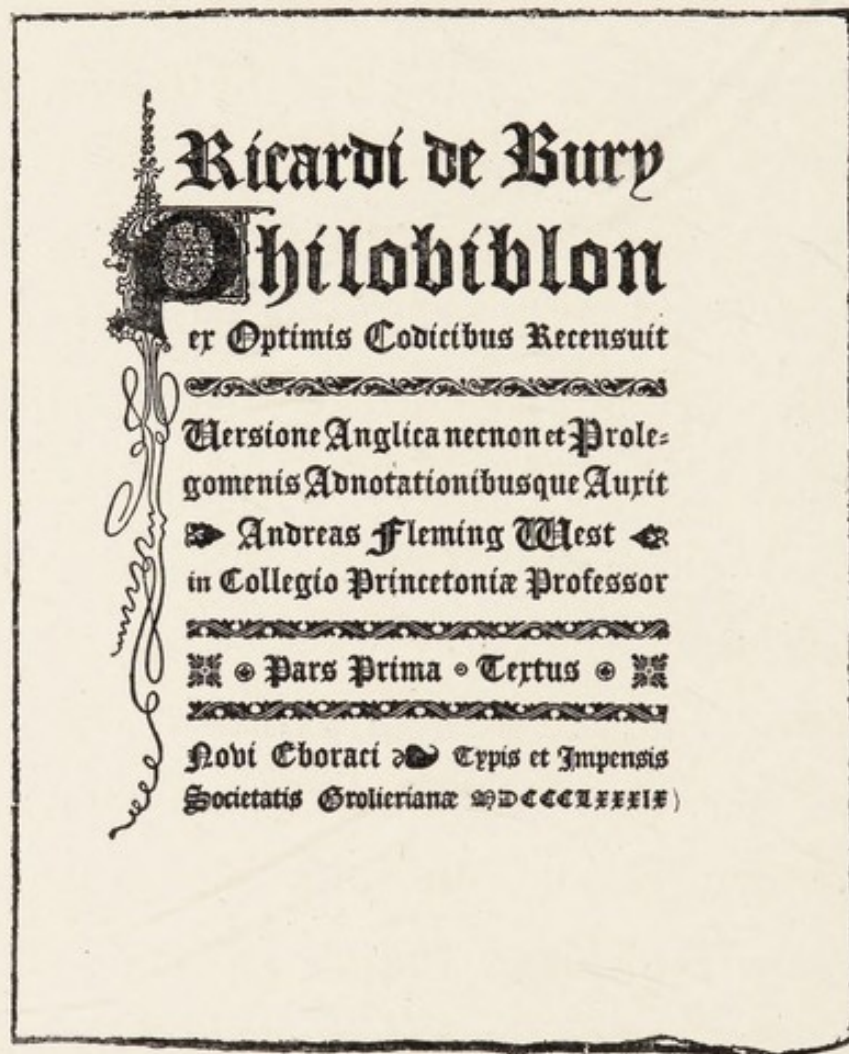 Ricardi de Bury
Philobiblon
ex Optimis Codicibus Recensuit
Versione Anglica necnon et Prole=
gomenis Adnotationibusque Auxit
Andreas Fleming West
in Collegio Princetoniæ Professor
Pars Prima Textus
Novi Eboraci Typis et Impensis
Societatis Grolierianæ MDCCCLXXXIX)